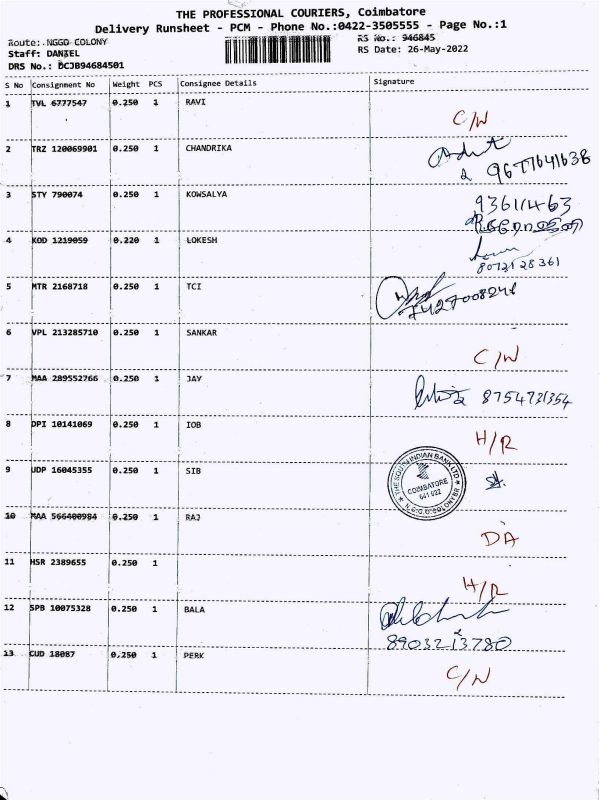 THE PROFESSIONAL COURIERS, Coimbatore
Delivery Runsheet - PCM - Phone No.:0422-3505555 - Page No.:1
Route: NGGO COLONY
RS No.: 946845
Staff: DANIEL
RS Date: 26-May-2022
DRS No.: DCJB94684501
S No Consignment No Weight PCS Consignee Details Signature
1 TVL 6777547 0.250 1 RAVI
C/W
2 TRZ 120069901 0.250 1 CHANDRIKA
9677641638
3 STY 790074 0.250 1 KOWSALYA
93611463
4 KOD 1219059 0.220 1 LOKESH
8072128361
5 MTR 2168718 0.250 1 TCI
7427008248
6 VPL 213285710 0.250 1 SANKAR
C/W
7 MAA 289552766 0.250 1 JAY
8754721354
8 DPI 10141069 0.250 1 IOB
H/R
9 UDP 16045355 0.250 1 SIB
THE SOUTH INDIAN BANK LTD
COIMBATORE
641 022
10 MAA 566400984 0.250 1 RAJ
DA
11 HSR 2389655 0.250 1
H/R
12 SPB 10075328 0.250 1 BALA
8903213780
13 CUD 18087 0.250 1 PERK
C/W